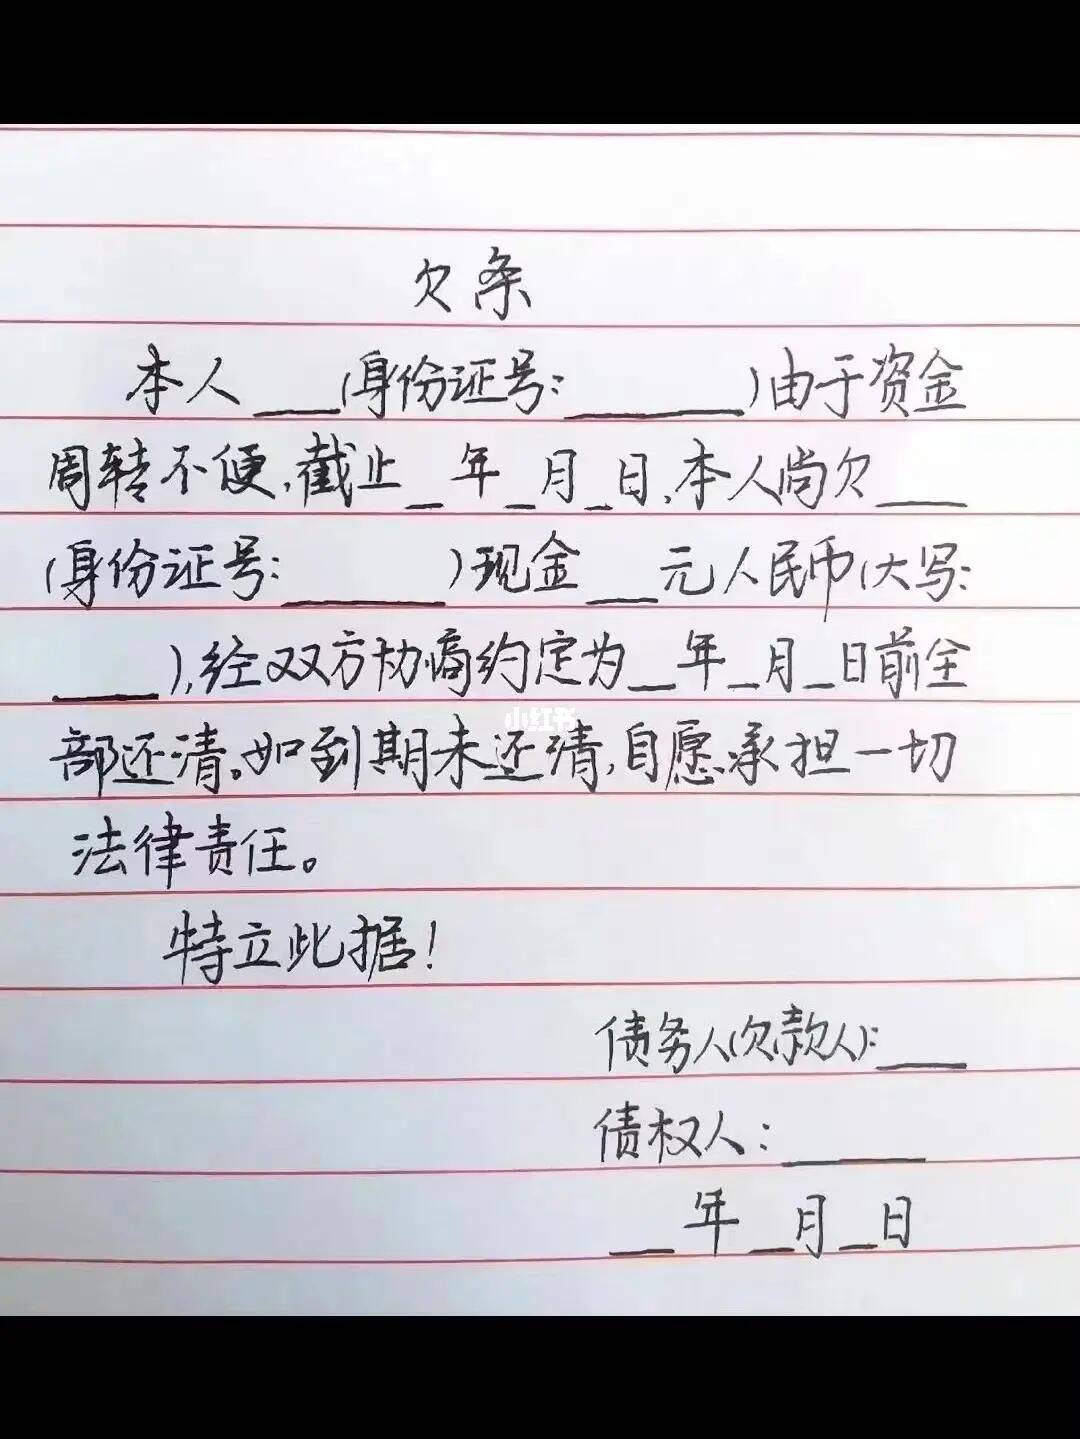 欠条
本人___(身份证号:______)由于资金
周转不便,截止_年_月_日,本人尚欠___
(身份证号:______)现金___元人民币(大写:
____),经双方协商约定为_年_月_日前全
部还清。如到期未还清,自愿承担一切
法律责任。
特立此据!
债务人(欠款人):___
债权人:_____
__年__月__日
小红书